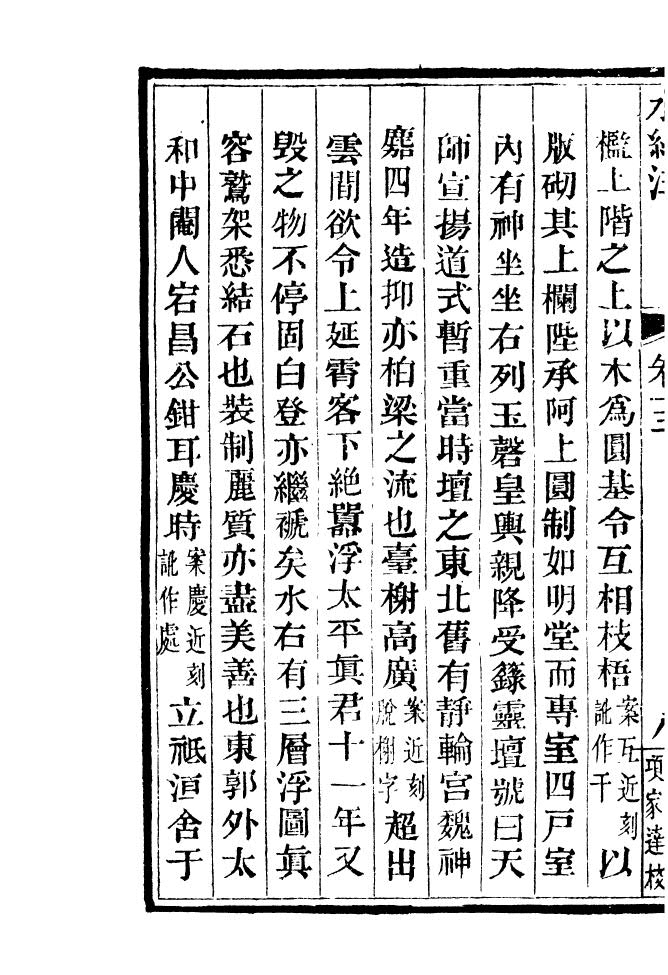 水經注 卷十三 八 項家達校
檻上階之上以木爲圓基令互相枝梧案互近刻訛作干以
版砌其上欄陛承阿上圓制如明堂而專室四戸室
內有神坐坐右列玉磬皇輿親降受籙靈壇號曰天
師宣揚道式暫重當時壇之東北舊有靜輪宮魏神
䴥四年造抑亦柏梁之流也臺榭高廣案近刻脫榭字超出
雲間欲令上延霄客下絶囂浮太平眞君十一年又
毁之物不停固白登亦繼褫矣水右有三層浮圖眞
容鷲架悉結石也裝制麗質亦盡美善也東郭外太
和中閹人宕昌公鉗耳慶時案慶近刻訛作處立祗洹舍于